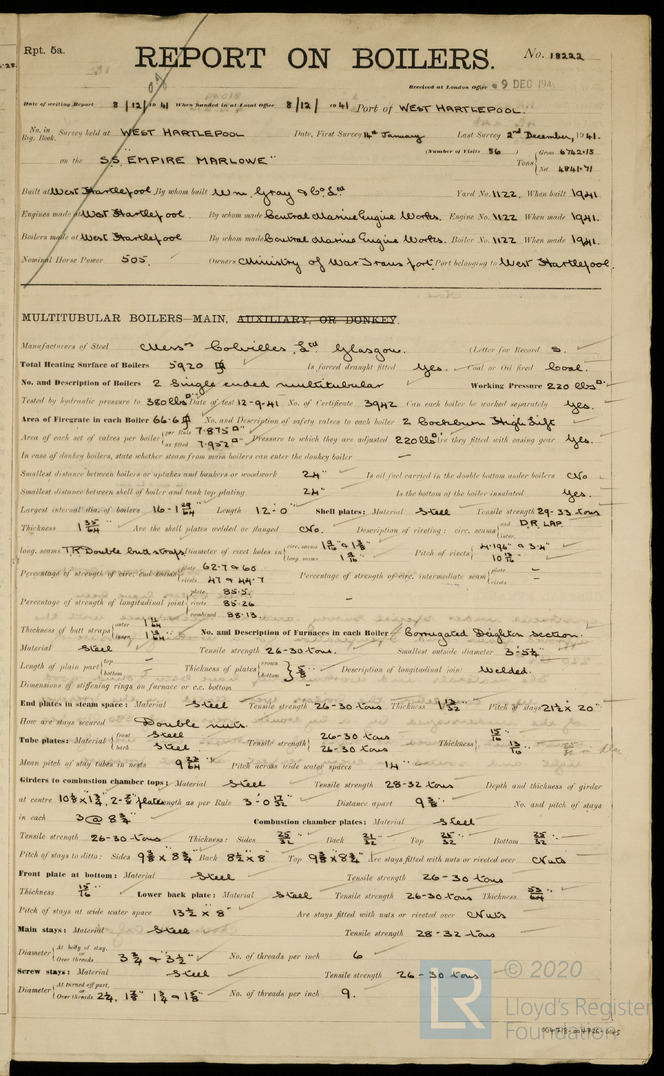 Rpt. 5a.
REPORT ON BOILERS.
No. 18222
Received at London Office 9 DEC 194
Date of writing Report 8/12/1941 When handed in at Local Office 8/12/1941 Port of WEST HARTLEPOOL.
No. in Reg. Book. Survey held at WEST HARTLEPOOL Date, First Survey 14th January Last Survey 2nd December, 1941.
(Number of Visits 56)
on the S.S. "EMPIRE MARLOWE" Tons { Gross 6742.15 Net 4841.71
Built at West Hartlepool By whom built Wm. Gray & Co. Ltd Yard No. 1122. When built 1941.
Engines made at West Hartlepool. By whom made Central Marine Engine Works. Engine No. 1122 When made 1941.
Boilers made at West Hartlepool By whom made Central Marine Engine Works. Boiler No. 1122 When made 1941.
Nominal Horse Power 505. Owners Ministry of War Transport. Port belonging to West Hartlepool.
MULTITUBULAR BOILERS—MAIN, AUXILIARY, OR DONKEY.
Manufacturers of Steel Messrs Colvilles, Ltd Glasgow. (Letter for Record S.
Total Heating Surface of Boilers 5920 Is forced draught fitted Yes. Coal or Oil fired Coal.
No. and Description of Boilers 2 Single ended multitubular Working Pressure 220 lbs
Tested by hydraulic pressure to 380 lbs Date of test 12-9-41 No. of Certificate 3942 Can each boiler be worked separately Yes.
Area of Firegrate in each Boiler 66.6 No. and Description of safety valves to each boiler 2 Cockburn High Lift
Area of each set of valves per boiler { per Rule 7.875 as fitted 7.952 Pressure to which they are adjusted 220 lbs Are they fitted with easing gear Yes.
In case of donkey boilers, state whether steam from main boilers can enter the donkey boiler —
Smallest distance between boilers or uptakes and bunkers or woodwork 24" Is oil fuel carried in the double bottom under boilers No
Smallest distance between shell of boiler and tank top plating 24" Is the bottom of the boiler insulated Yes.
Largest internal dia. of boilers 16-1 29/64 Length 12-0" Shell plates: Material Steel Tensile strength 29-33 tons
Thickness 1 35/64 Are the shell plates welded or flanged No. Description of riveting: circ. seams { end D.R. LAP. inter.
long. seams T.R. Double butt straps Diameter of rivet holes in { circ. seams long. seams Pitch of rivets { 4.196" & 3.4"
Percentage of strength of circ. end seams { plate 62.7 & 60 rivets 47 & 44.7 Percentage of strength of circ. intermediate seam { plate – rivets –
Percentage of strength of longitudinal joint { plate 85.5. rivets 85.26 combined 88.13.
Thickness of butt straps { outer inner No. and Description of Furnaces in each Boiler 4 Corrugated Deighton Section.
Material Steel Tensile strength 26-30 tons. Smallest outside diameter
Length of plain part { top – bottom Thickness of plates { crown bottom } 5/8 Description of longitudinal joint Welded.
Dimensions of stiffening rings on furnace or c.c. bottom
End plates in steam space: Material Steel Tensile strength 26-30 tons Thickness 1 13/32 Pitch of stays 21½ x 20"
How are stays secured Double nuts.
Tube plates: Material { front Steel back Steel. Tensile strength { 26-30 tons 26-30 tons Thickness { 15/16 13/16
Mean pitch of stay tubes in nests Pitch across wide water spaces 14"
Girders to combustion chamber tops: Material Steel Tensile strength 28-32 tons Depth and thickness of girder
at centre Length as per Rule 3-0 17/32 Distance apart 9⅜" No. and pitch of stays
in each 3 @ 8¾" Combustion chamber plates: Material Steel
Tensile strength 26-30 tons Thickness: Sides 25/32 Back 21/32 Top 25/32 Bottom 25/32
Pitch of stays to ditto: Sides 9⅜ x 8¾ Back 8½ x 8" Top 9⅜ x 8¾" Are stays fitted with nuts or riveted over Nuts
Front plate at bottom: Material Steel Tensile strength 26-30 tons
Thickness 15/16 Lower back plate: Material Steel Tensile strength 26-30 tons Thickness 53/64
Pitch of stays at wide water space 13½ x 8" Are stays fitted with nuts or riveted over Nuts
Main stays: Material Steel Tensile strength 28-32 tons
Diameter { At body of stay, or Over threads 3¾ & 3½" No. of threads per inch 6
Screw stays: Material Steel Tensile strength 26-30 tons
Diameter { At turned off part, or Over threads No. of threads per inch 9.
© 2020
LR
Lloyd's Register
Foundation